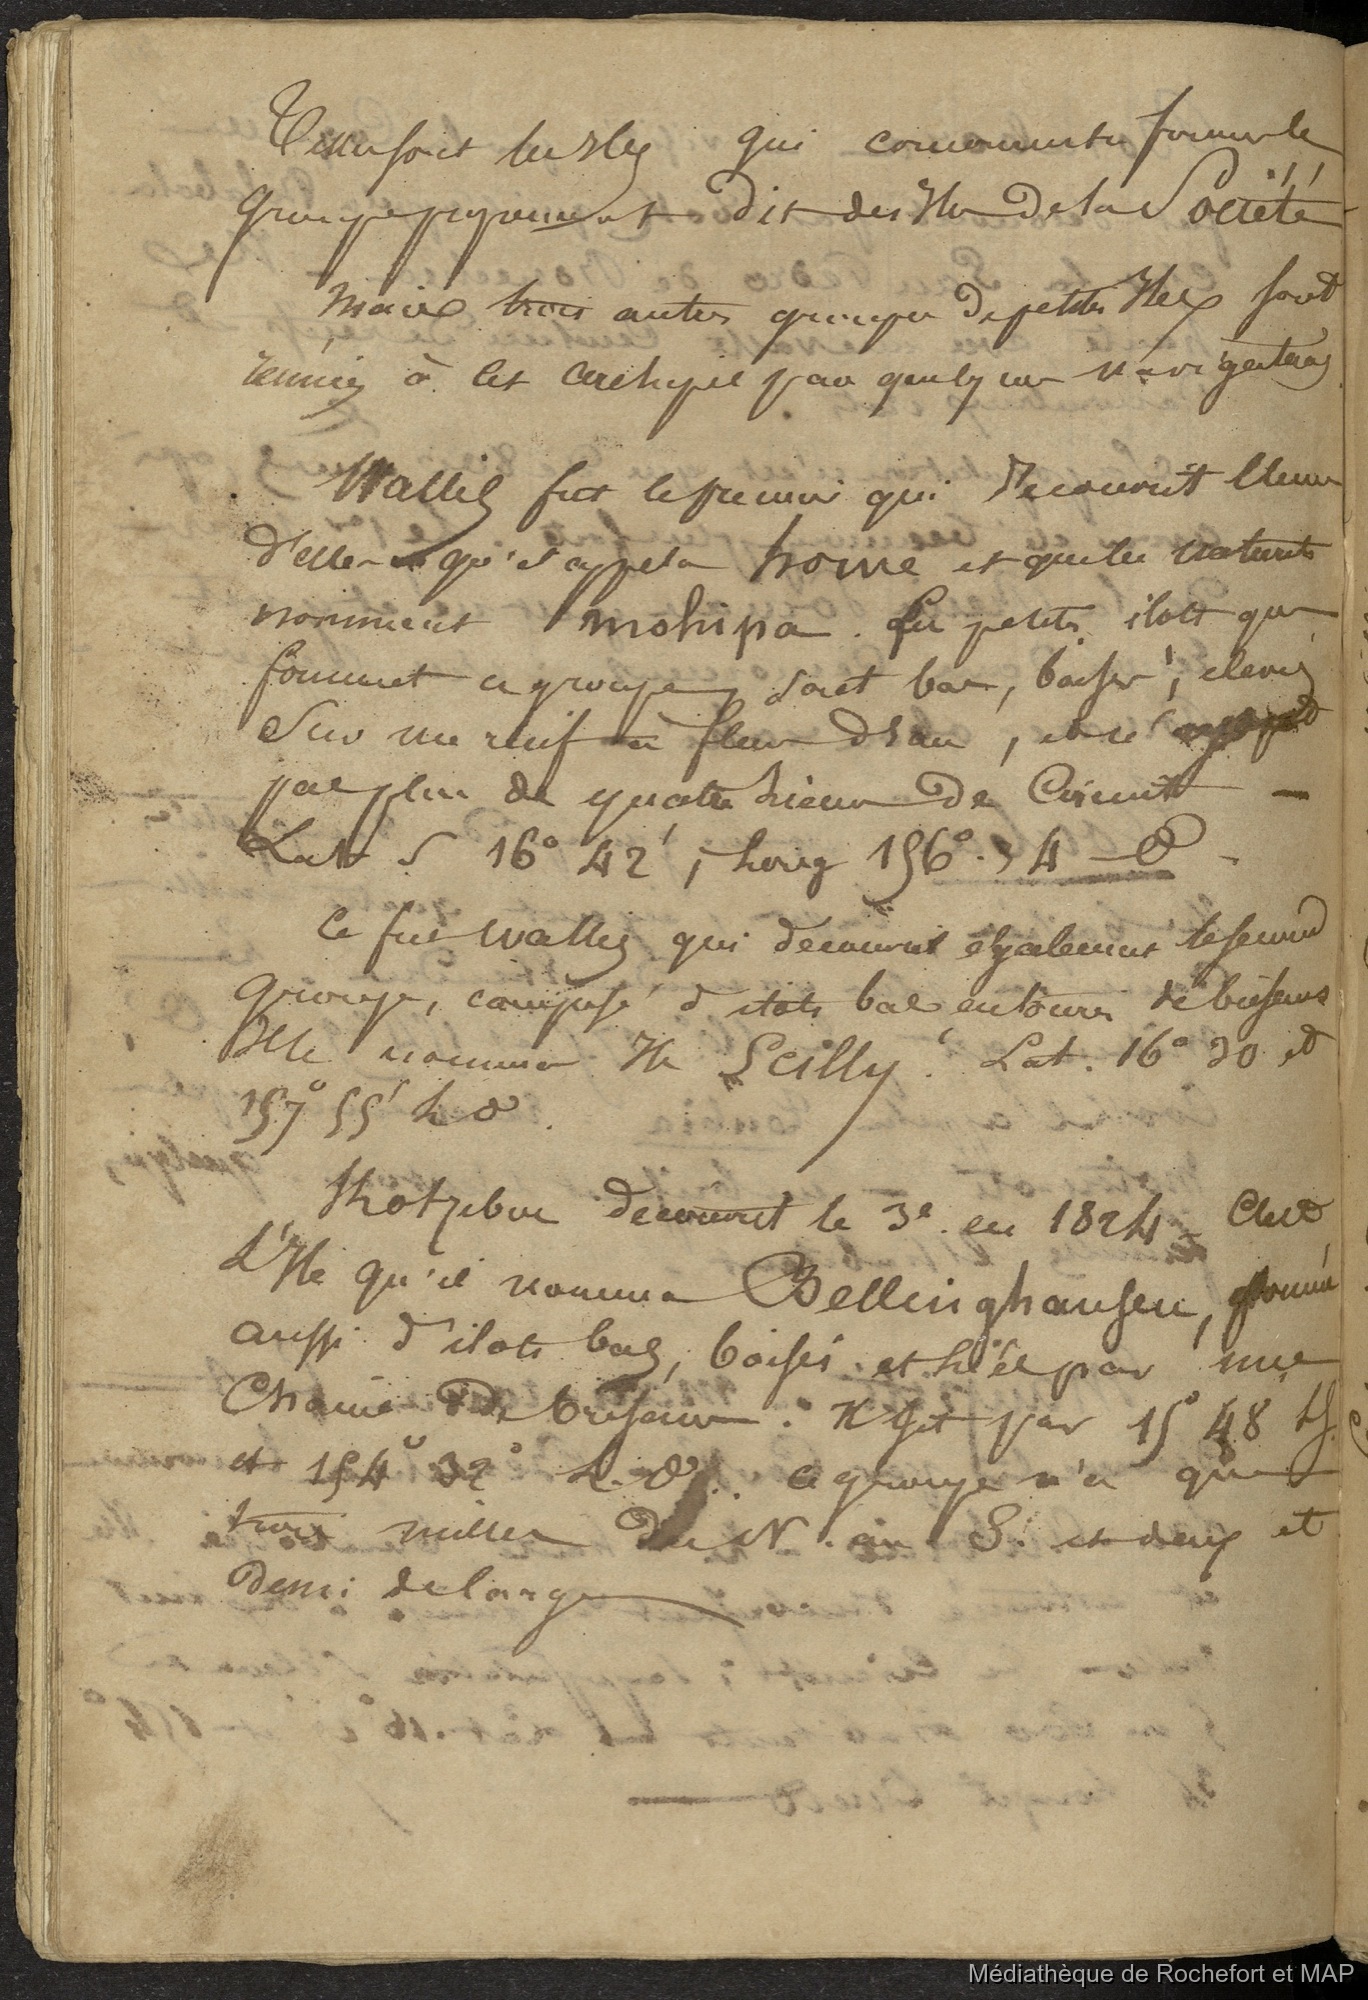 Telles sont les Iles qui concourent à former le
groupe proprement dit des Iles de la Société
Mais trois autres groupes de petites Iles sont
réunies à cet archipel par quelques navigateurs
Wallis fut le premier qui découvrit l'une
d'elles qu'il appela howe et que les naturels
nomment mohipa. Les petits ilots qui
forment ce groupe, sont bas, boisés, élevés
Sur un récif à fleur d'eau, et n'
pas plus de quatre lieues de Circuit —
Lat S 16° 42', long 156° . 34 O -
Ce fut Wallis qui découvrit également le second
groupe, composé d'ilots bas entourés de brisans
Il le nomma Ile Scilly. Lat. 16° 30 et
157° 55' L O.
Kotzebue découvrit le 3e. en 1824 - C'est
L'Ile qu'il nomma Bellinghausen, formée
aussi d'ilots bas, boisés et liés par une
Chaine de brisans. Il git par 15° 48' LS.
et 154° 32° L. O. ce groupe n'a que
trois milles du N. au S. et deux et
demi de large
Médiathèque de Rochefort et MAP